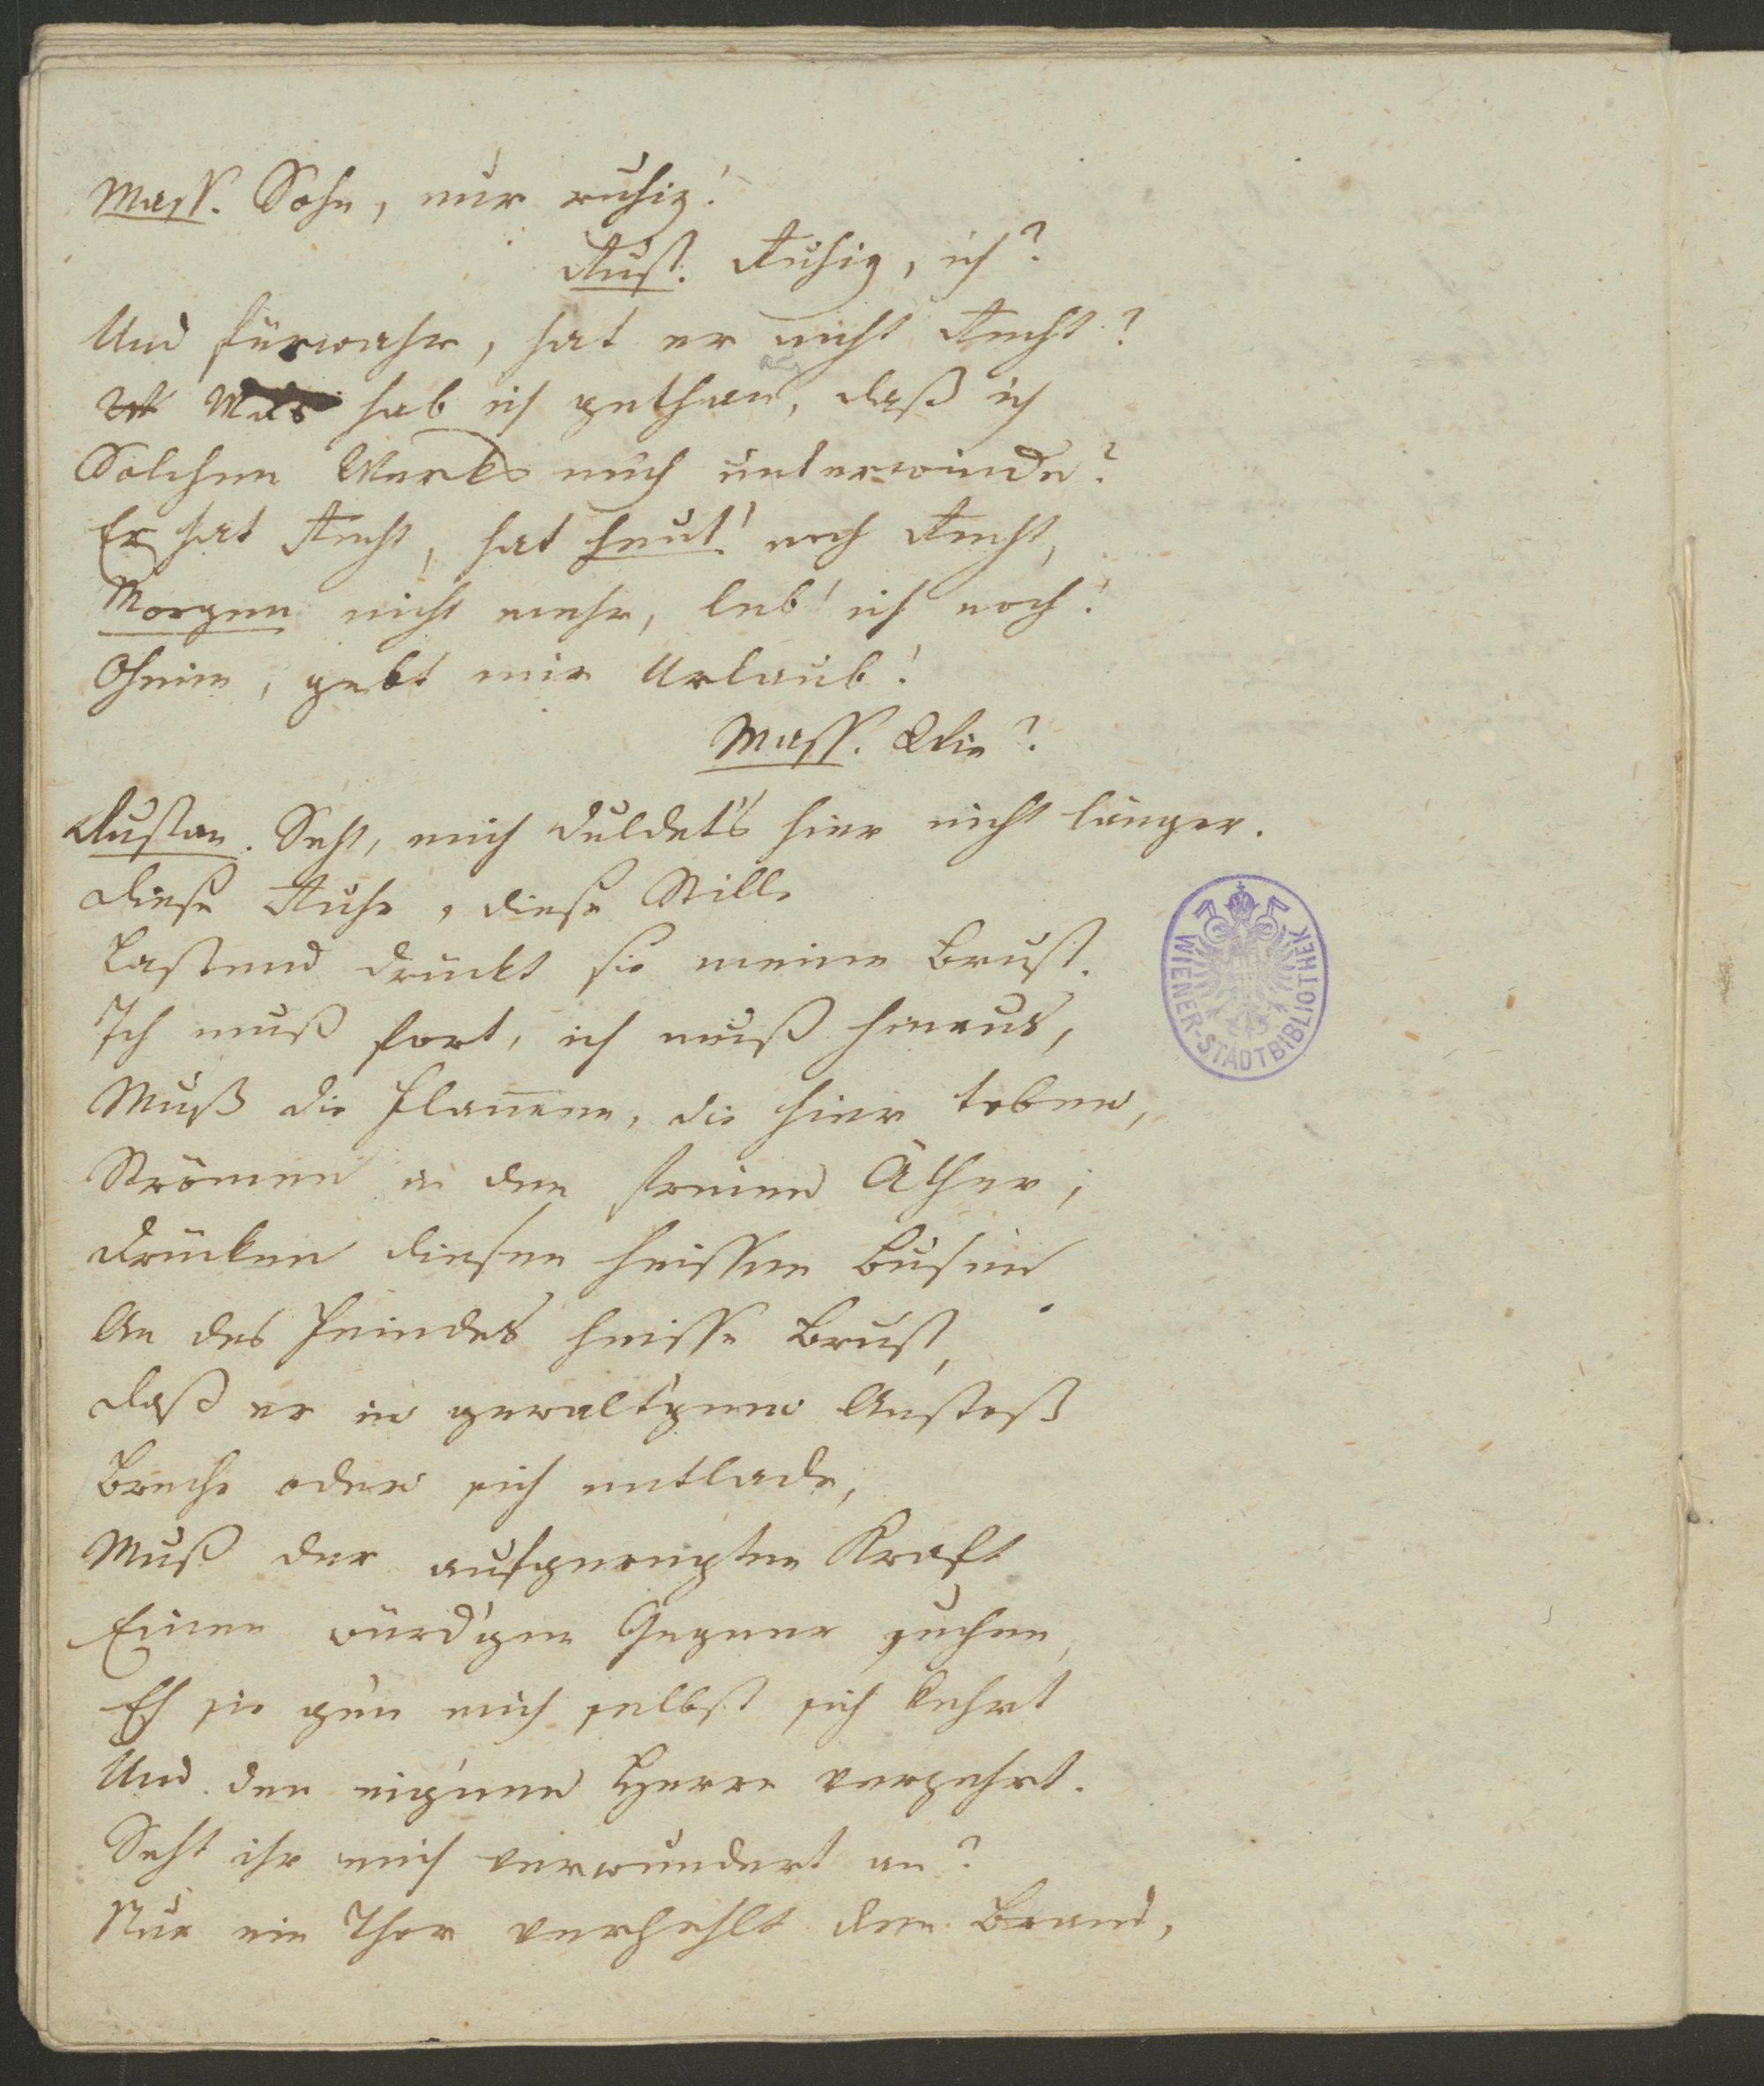 Mass. Sohn, nur ruhig!
Rust. Ruhig, ich?
Und fürwahr, hat er nicht Recht?
Was hab ich gethan, daß ich
Solchen Werks mich unterwinde?
Er hat Recht, hat heut' noch Recht,
Morgen nicht mehr, leb' ich noch!
Oheim, gebt mir Urlaub!
Mass. Wie?
Rustan. Seht, mich duldet's hier nicht länger.
Diese Ruhe, diese Stille
Lastend drückt sie meine Brust.
Ich muß fort, ich muß hinaus,
Muß die Flam̄en, die hier toben,
Strömen in den freien Äther,
Drücken diesen heissen Busen
An des Feindes heisse Brust,
Daß er in gewalt'gem Anstoß
Breche oder sich entlade,
Muß der aufgeregten Kraft
Einen würd'gen Gegner suchen,
Eh sie gen mich selbst sich kehrt
Und den eig'nen Herrn verzehrt.
Seht ihr mich verwundert an?
Nur ein Thor verhehlt den Brand,
WIENER-STADTBIBLIOTHEK